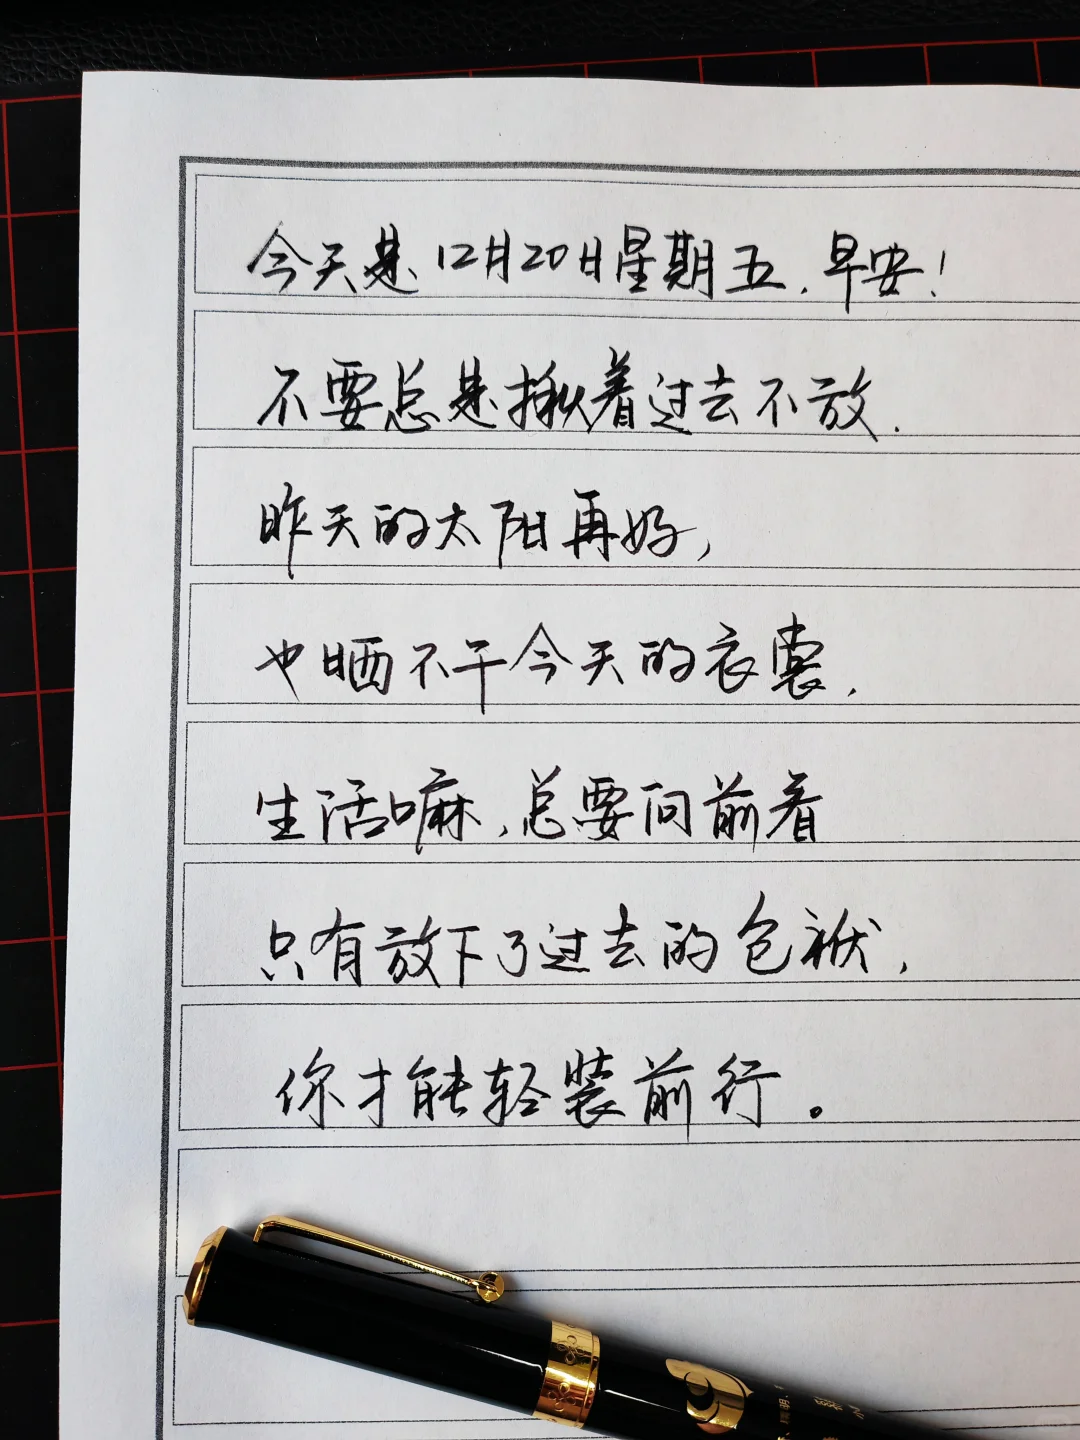 今天是12月20日星期五.早安!
不要总是揪着过去不放.
昨天的太阳再好,
也晒不干今天的衣裳.
生活嘛,总要向前着
只有放下了过去的包袱,
你才能轻装前行。